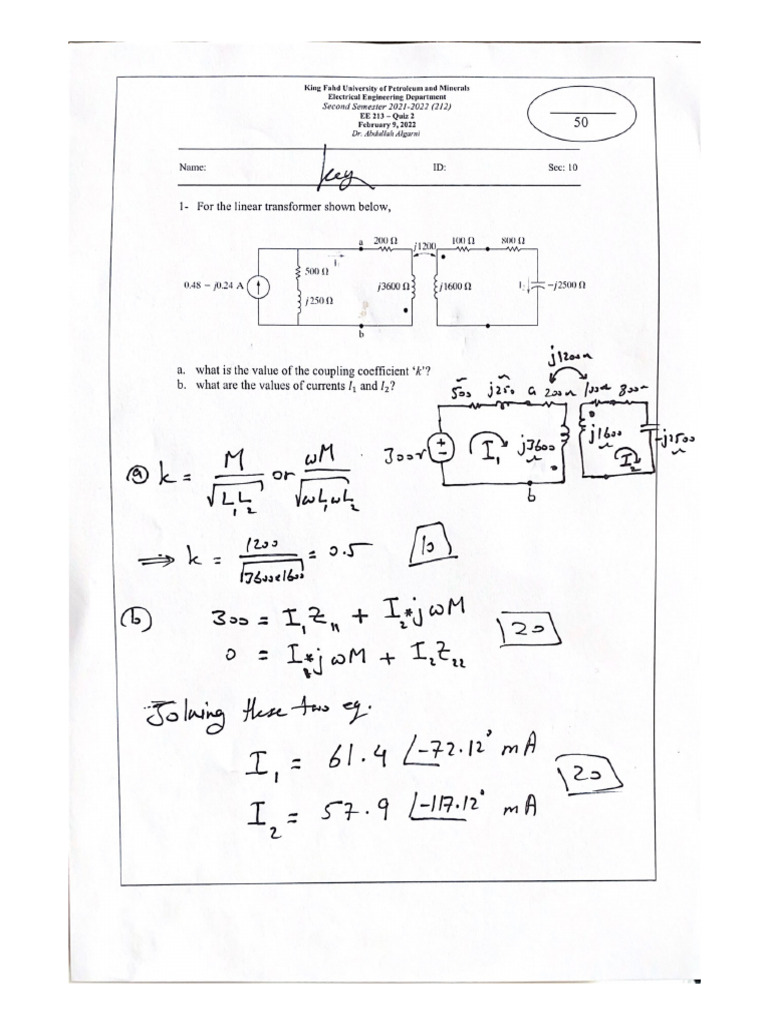 King Fahd University of Petroleum and Minerals
Electrical Engineering Department
Second Semester 2021-2022 (212)
EE 213 – Quiz 2
February 9, 2022
Dr. Abdallah Algarni
50
Name: key ID: Sec: 10
1- For the linear transformer shown below,
a 200 Ω j1200 100 Ω 800 Ω
I₁ 500 Ω
0.48 − j0.24 A j3600 Ω j1600 Ω I₂ −j2500 Ω
j250 Ω
b
a. what is the value of the coupling coefficient ‘k’?
b. what are the values of currents I₁ and I₂?
j1200Ω
500 j250 a 200Ω 100Ω 800Ω
300V I₁ j3600 j1600 I₂ -j2500
b
ⓐ k = M / √(L₁L₂) or ωM / √(ωL₁ωL₂)
⟹ k = 1200 / √(3600×1600) = 0.5 10
ⓑ 300 = I₁Z₁₁ + I₂*jωM 20
0 = I₁*jωM + I₂Z₂₂
Solving these two eq.
I₁ = 61.4 ∠-72.12° mA 20
I₂ = 57.9 ∠-117.12° mA